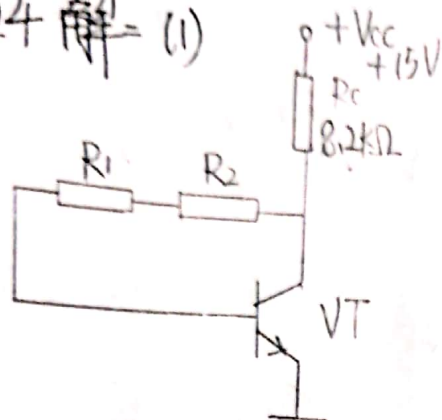 .4 解=(1)
+Vcc
+15V
Rc
8.2kΩ
R1
R2
VT